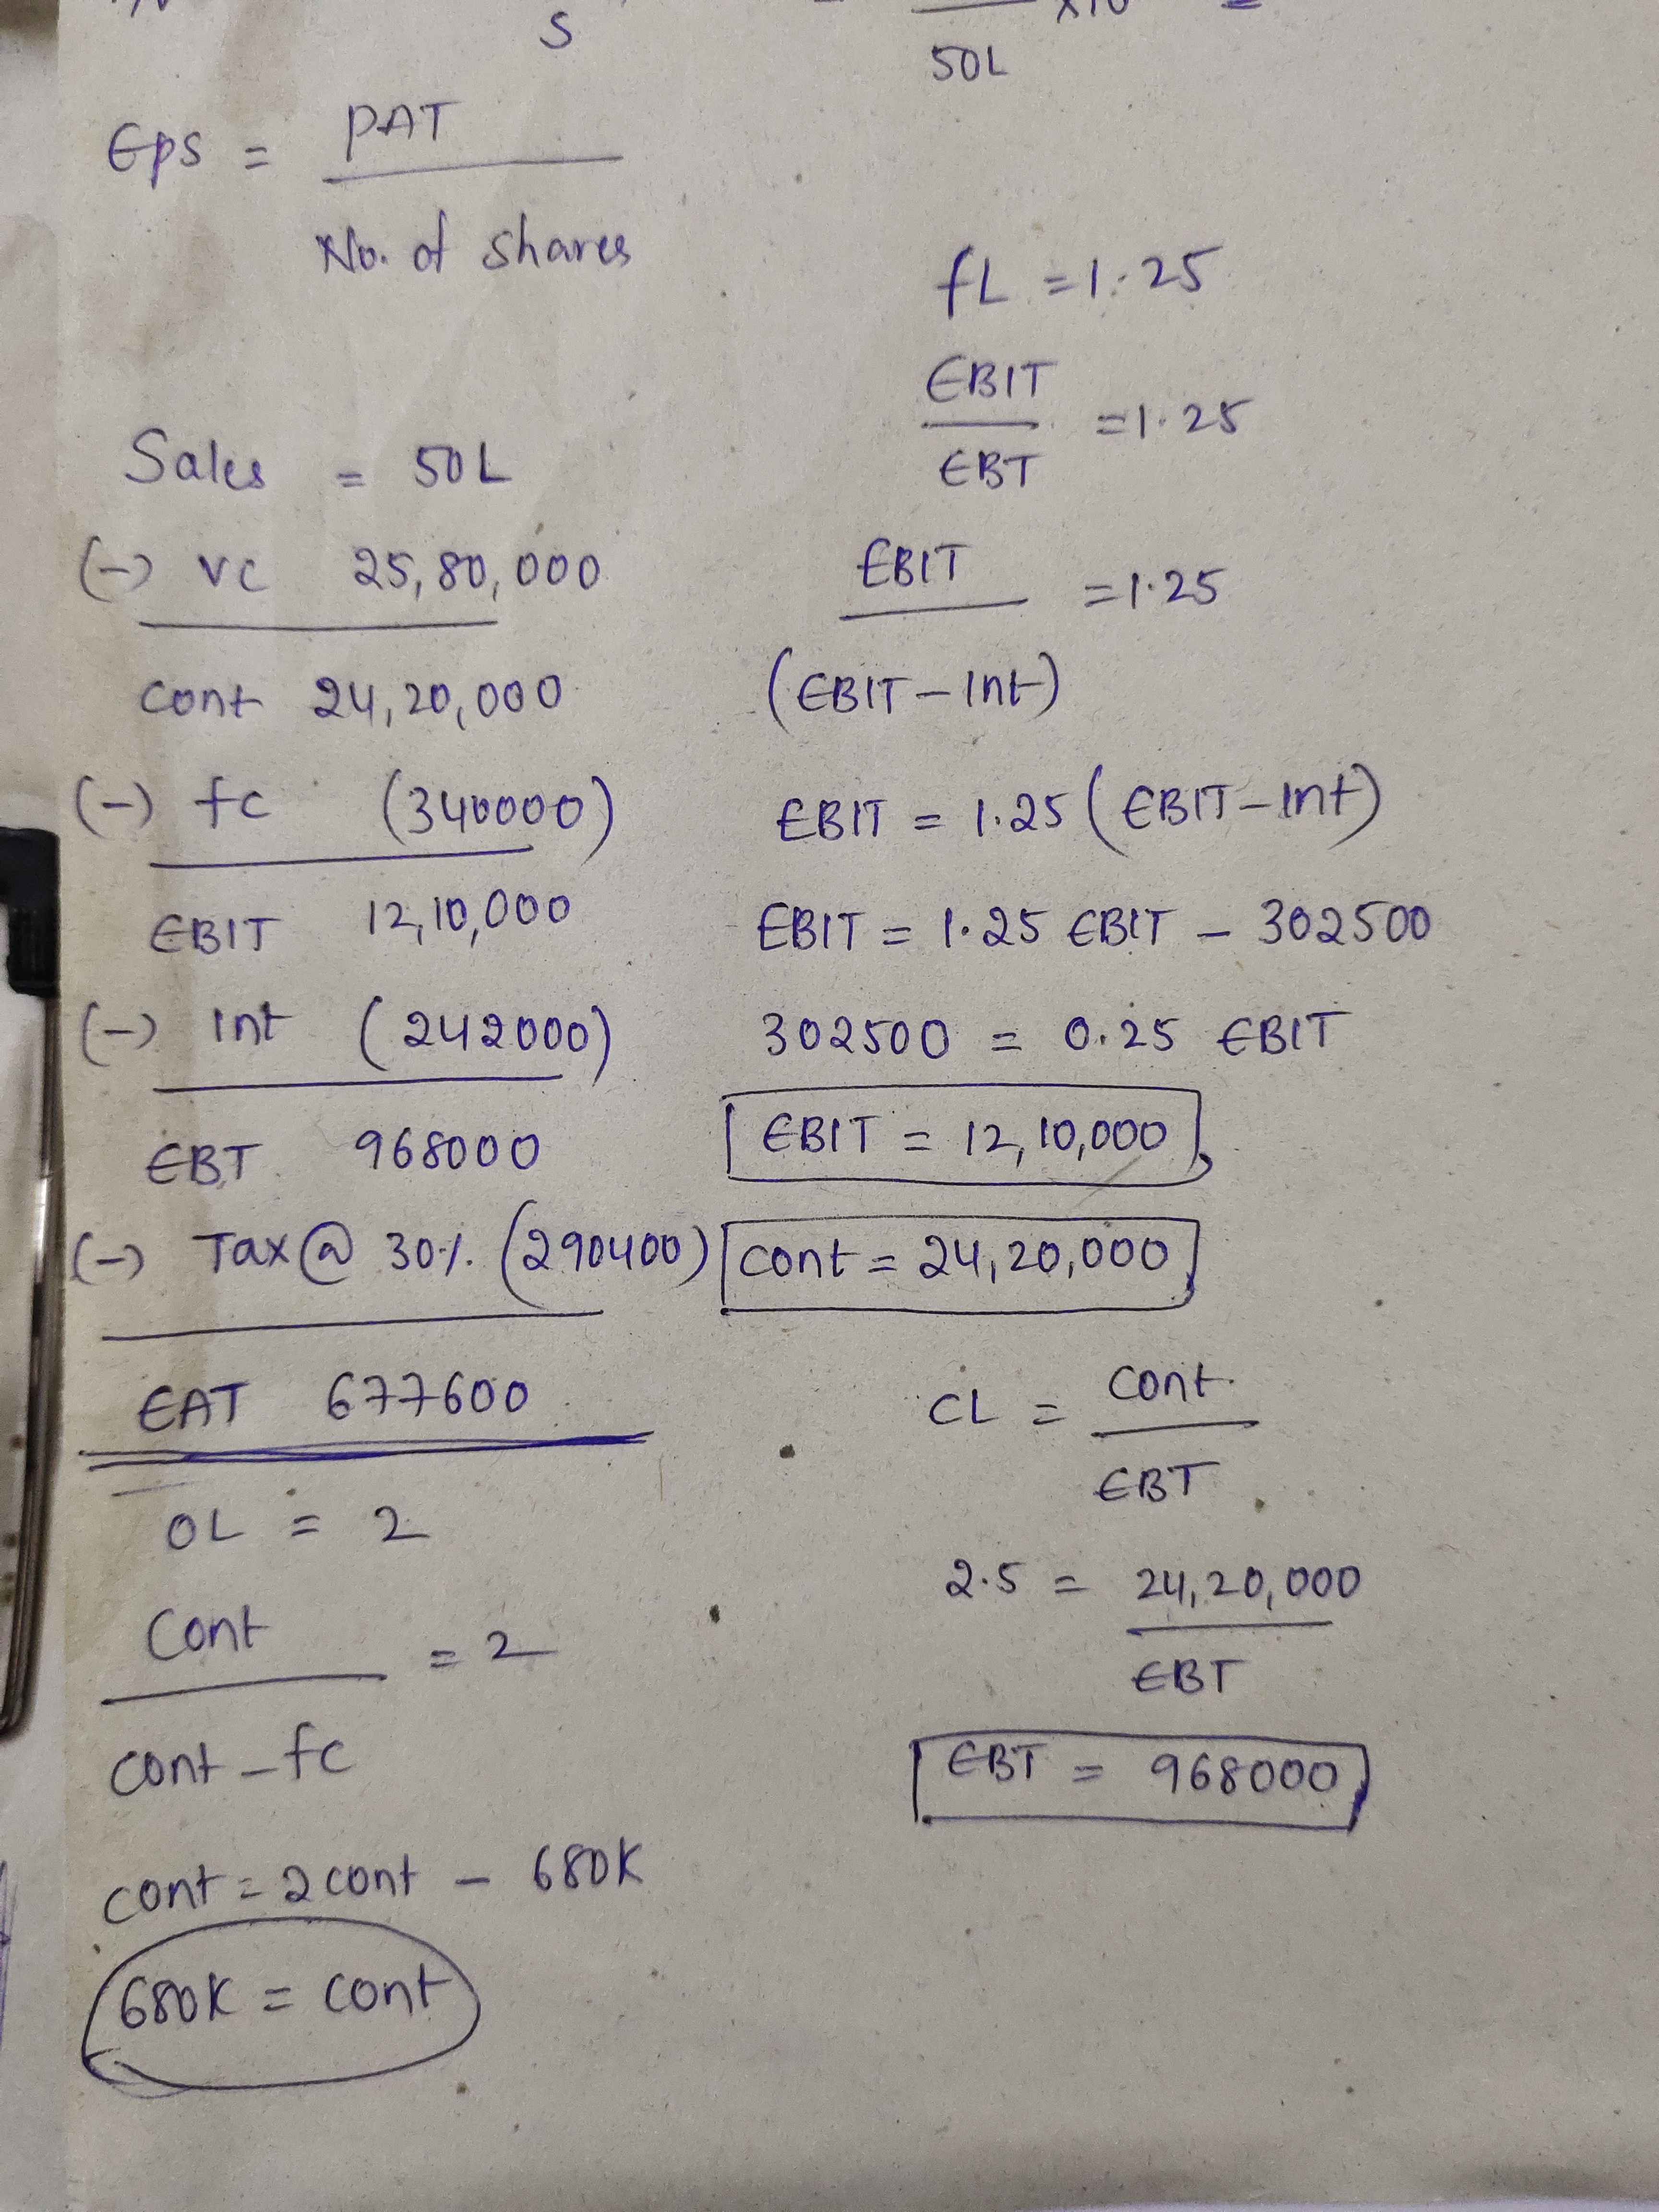 S
50L
EPS = PAT
No. of shares
Sales = 50L
(-) VC 25,80,000
Cont 24,20,000
(-) fc (340000)
EBIT 12,10,000
(-) Int (242000)
EBT 968000
(-) Tax @ 30%. (290400)
EAT 677600
OL = 2
Cont = 2
cont - fc
cont = 2 cont - 680K
680K = cont
fL = 1.25
EBIT = 1.25
EBT
EBIT = 1.25
(EBIT - Int)
EBIT = 1.25 (EBIT - Int)
EBIT = 1.25 EBIT - 302500
302500 = 0.25 EBIT
EBIT = 12,10,000
Cont = 24,20,000
CL = Cont.
EBT
2.5 = 24,20,000
EBT
EBT = 968000